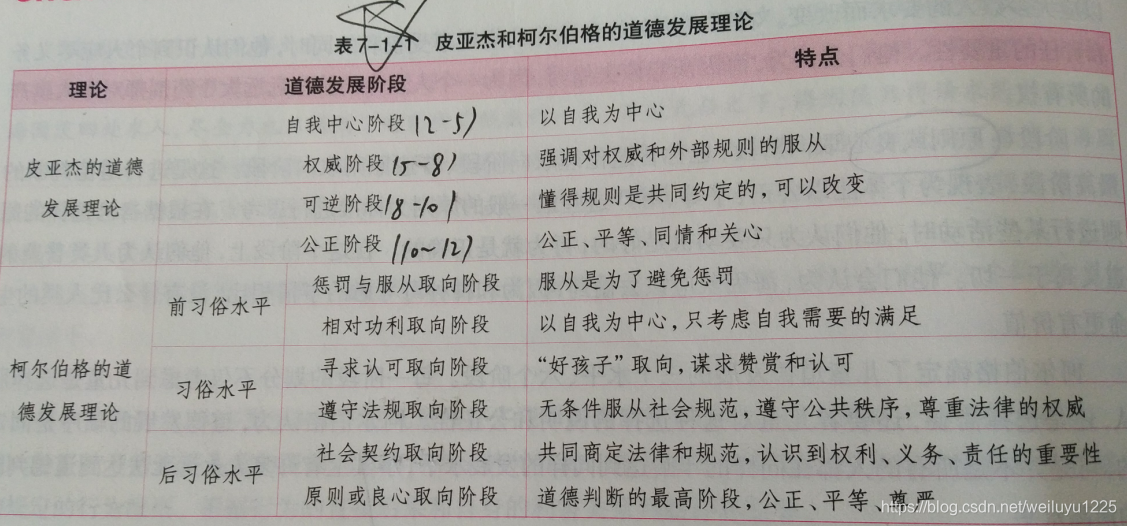 表7-1-1 皮亚杰和柯尔伯格的道德发展理论
理论 道德发展阶段 特点
皮亚杰的道德
发展理论
自我中心阶段 (2-5) 以自我为中心
权威阶段 (5-8) 强调对权威和外部规则的服从
可逆阶段 (8-10) 懂得规则是共同约定的,可以改变
公正阶段 (10~12) 公正、平等、同情和关心
柯尔伯格的道
德发展理论
前习俗水平
惩罚与服从取向阶段 服从是为了避免惩罚
相对功利取向阶段 以自我为中心,只考虑自我需要的满足
习俗水平
寻求认可取向阶段 “好孩子”取向,谋求赞赏和认可
遵守法规取向阶段 无条件服从社会规范,遵守公共秩序,尊重法律的权威
后习俗水平
社会契约取向阶段 共同商定法律和规范,认识到权利、义务、责任的重要性
原则或良心取向阶段 道德判断的最高阶段,公正、平等、尊严
https://blog.csdn.net/weiluyu1225